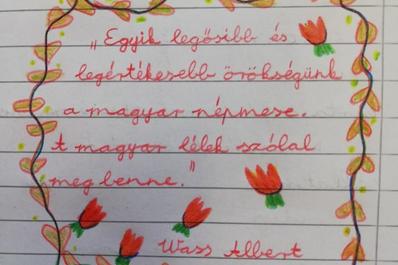 „Egyik legősibb és
legértékesebb örökségünk
a magyar népmese.
A magyar lélek szólal
meg benne."
Wass Albert